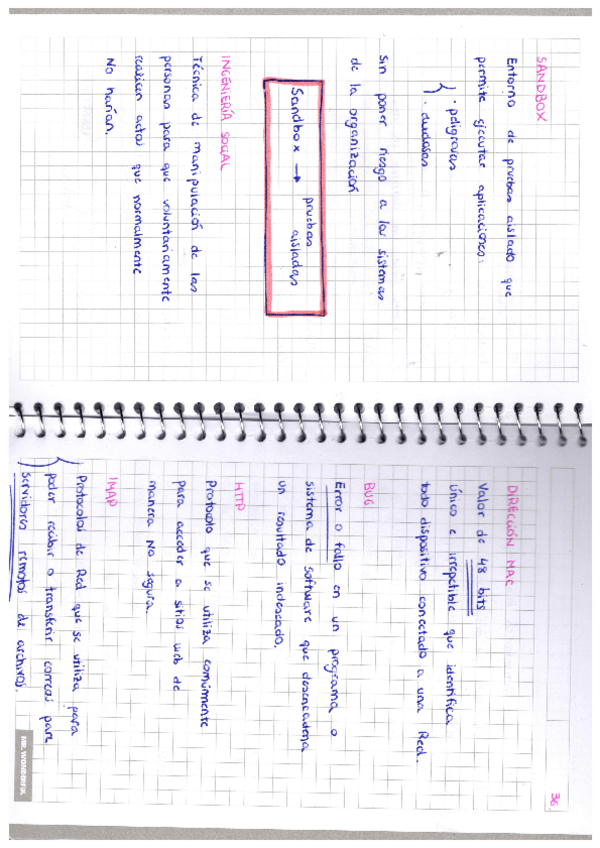 SANDBOX
Entorno de pruebas aislado que
permite ejecutar aplicaciones:
· peligrosas
· dudosas
Sin poner riesgo a los sistemas
de la organización
Sandbox → pruebas
aisladas
INGENIERÍA SOCIAL
Técnica de manipulación de las
personas para que voluntariamente
realicen actos que normalmente
No harían.
36
DIRECCIÓN MAC
Valor de 48 bits
único e irrepetible que identifica
todo dispositivo conectado a una Red.
BUG
Error o fallo en un programa o
sistema de software que desencadena
un resultado indeseado.
HTTP
Protocolo que se utiliza comúnmente
para acceder a sitios web de
manera No segura.
IMAP
Protocolos de Red que se utiliza para
poder recibir o transferir correos para
servidores remotos de archivos.
MR. WONDERFUL